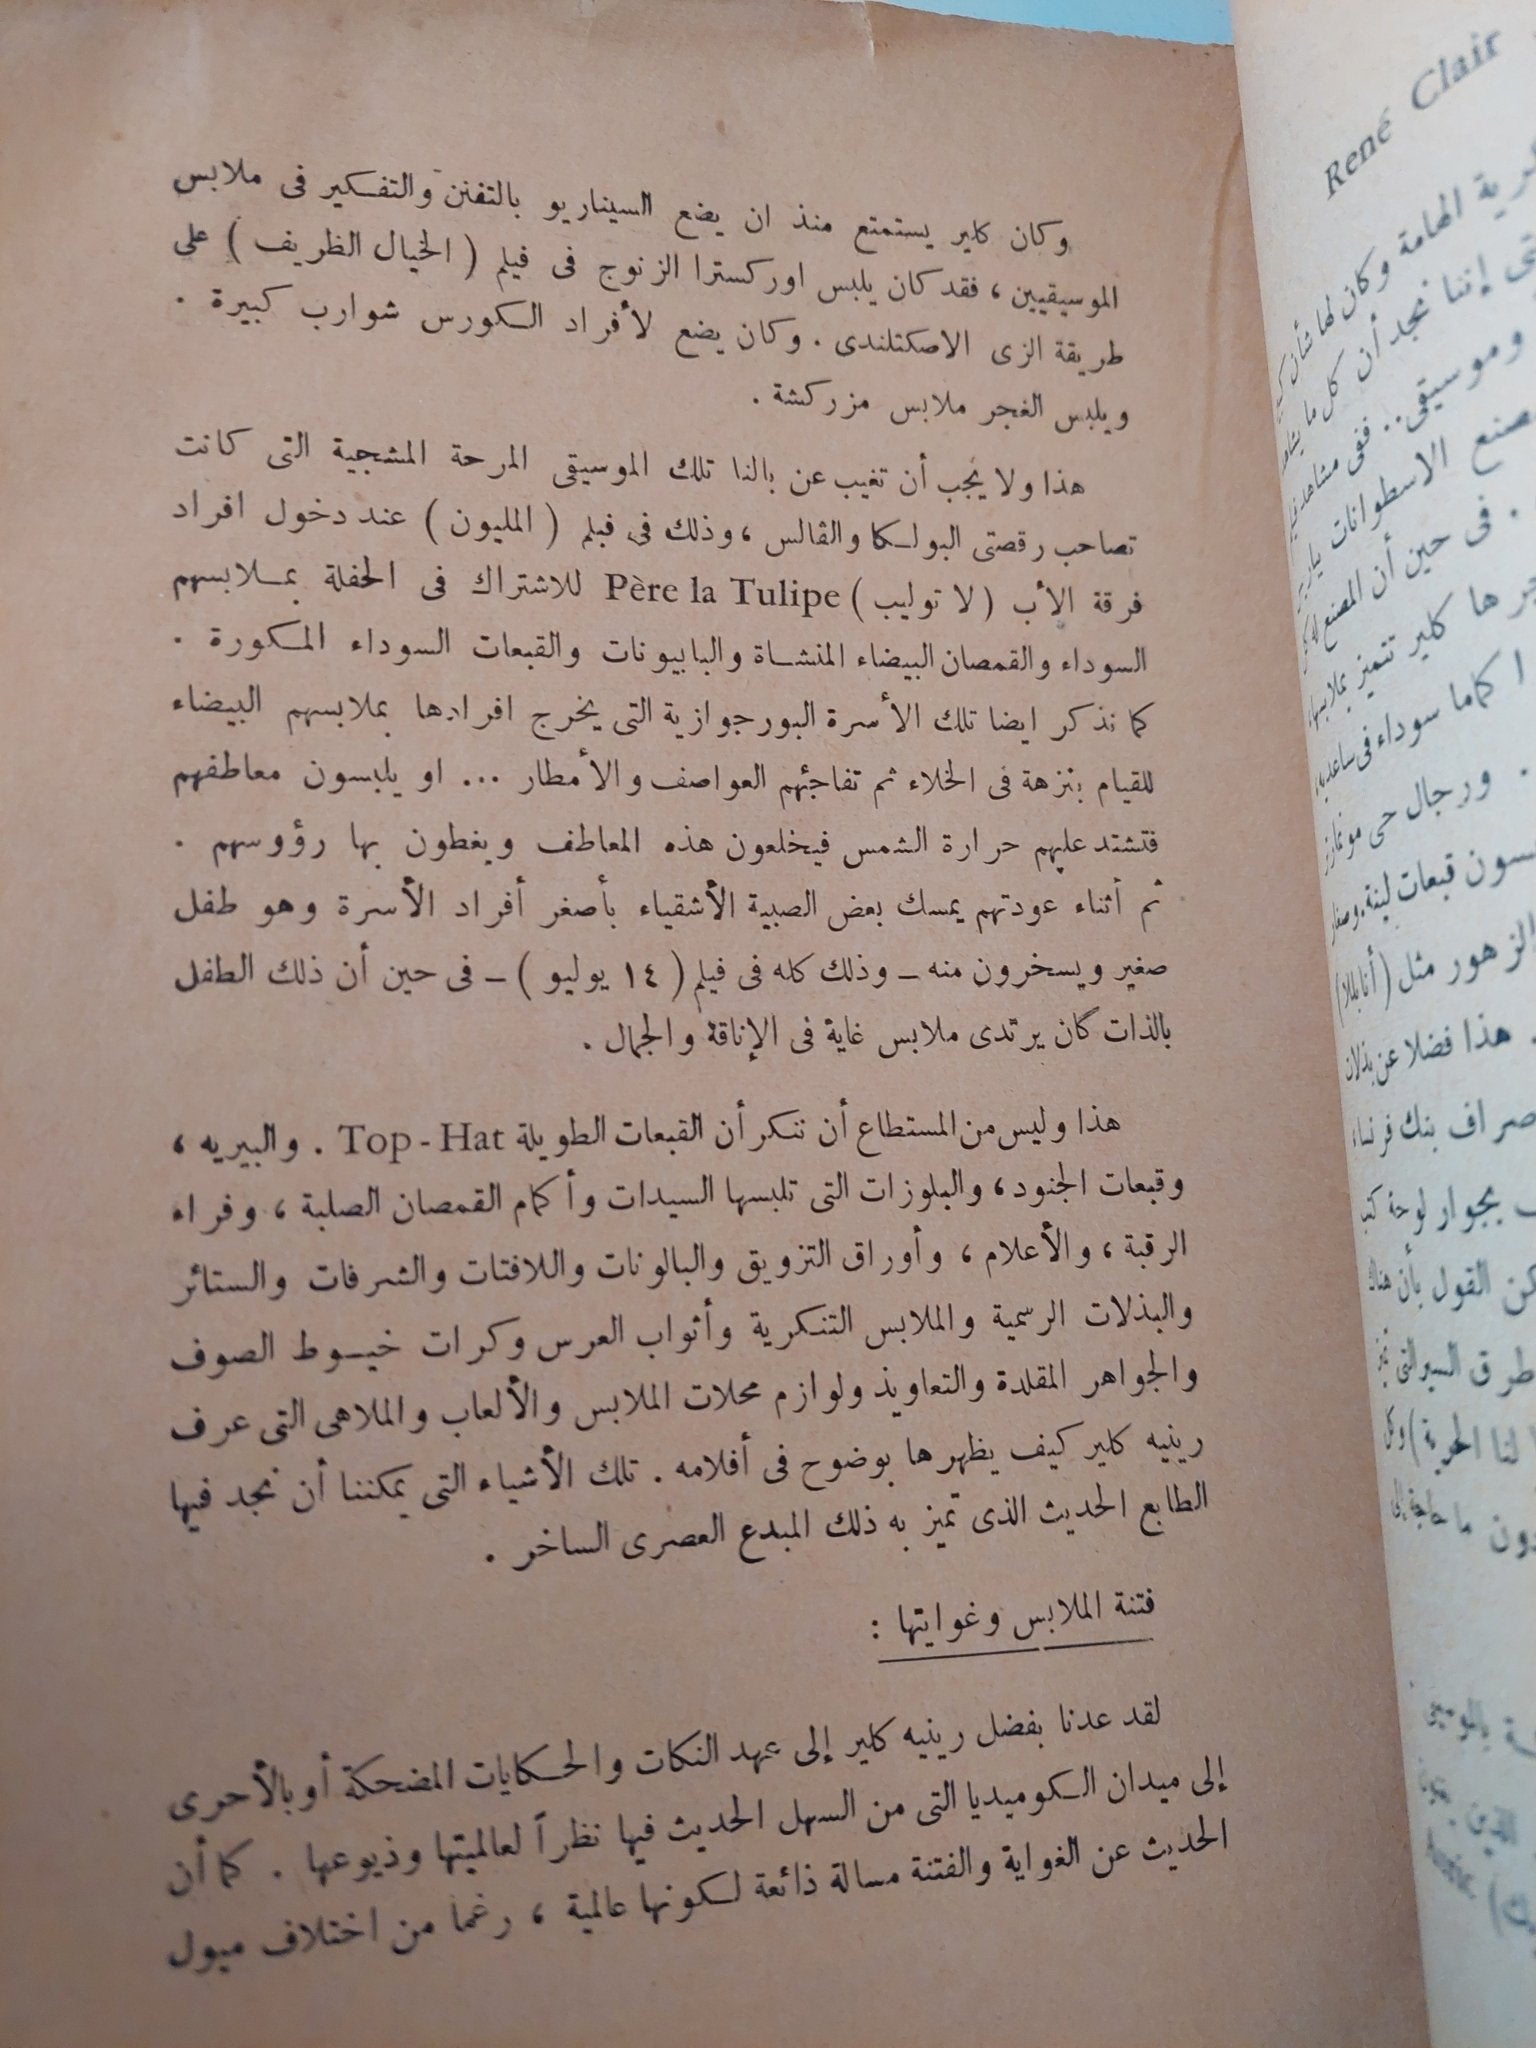 وكان كلير يستمتع منذ ان يضع السيناريو بالتفنن والتفكير فى ملابس
الموسيقيين ، فقد كان يلبس اوركسترا الزنوج فى فيلم ( الخيال الظريف ) على
طريقة الزى الاصكتلندى . وكان يضع لأفراد الكورس شوارب كبيرة .
ويلبس الغجر ملابس مزركشة .
هذا ولا يجب أن تغيب عن بالنا تلك الموسيقى المرحة المشجية التى كانت
تصاحب رقصتى البولكا والڤالس ، وذلك فى فيلم ( المليون ) عند دخول افراد
فرقة الأب ( لا توليب ) Père la Tulipe للاشتراك فى الحفلة بملابسهم
السوداء والقمصان البيضاء المنشاة والبابيونات والقبعات السوداء المكورة .
كما نذكر ايضا تلك الأسرة البورجوازية التى يخرج افرادها بملابسهم البيضاء
للقيام بنزهة فى الخلاء ثم تفاجئهم العواصف والأمطار ... او يلبسون معاطفهم
فتشتد عليهم حرارة الشمس فيخلعون هذه المعاطف ويغطون بها رؤوسهم .
ثم أثناء عودتهم يمسك بعض الصبية الأشقياء بأصغر أفراد الأسرة وهو طفل
صغير ويسخرون منه – وذلك كله فى فيلم ( ١٤ يوليو ) – فى حين أن ذلك الطفل
بالذات كان يرتدى ملابس غاية فى الإناقة والجمال .
هذا وليس من المستطاع أن ننكر أن القبعات الطويلة Top - Hat . والبيريه ،
وقبعات الجنود ، والبلوزات التى تلبسها السيدات وأكمام القمصان الصلبة ، وفراء
الرقبة ، والأعلام ، وأوراق التزويق والبالونات واللافتات والشرفات والستائر
والبذلات الرسمية والملابس التنكرية وأثواب العرس وكرات خيوط الصوف
والجواهر المقلدة والتعاويذ ولوازم محلات الملابس والألعاب والملاهى التى عرف
رينيه كلير كيف يظهرها بوضوح فى أفلامه . تلك الأشياء التى يمكننا أن نجد فيها
الطابع الحديث الذى تميز به ذلك المبدع العصرى الساخر .
فتنة الملابس وغوايتها :
لقد عدنا بفضل رينيه كلير إلى عهد النكات والحكايات المضحكة أو بالأحرى
إلى ميدان الكوميديا التى من السهل الحديث فيها نظراً لعالميتها وذيوعها . كما أن
الحديث عن الغواية والفتنة مسالة ذائعة لكونها عالمية ، رغما من اختلاف ميول
René Clair
الهامة وكان لها شأن
إننا نجد أن كل ما
وموسيقى .. ففى
الاسطوانات
. فى حين أن المصنع
كلير تتميز بملابسها
كماما سوداء فى
. ورجال حى
قبعات لينة .
الزهور مثل
. هذا فضلا عن بذلات
صراف بنك فرنسا
بجوار لوحة
القول بأن هناك
طرق السير التى
لنا الحرية )